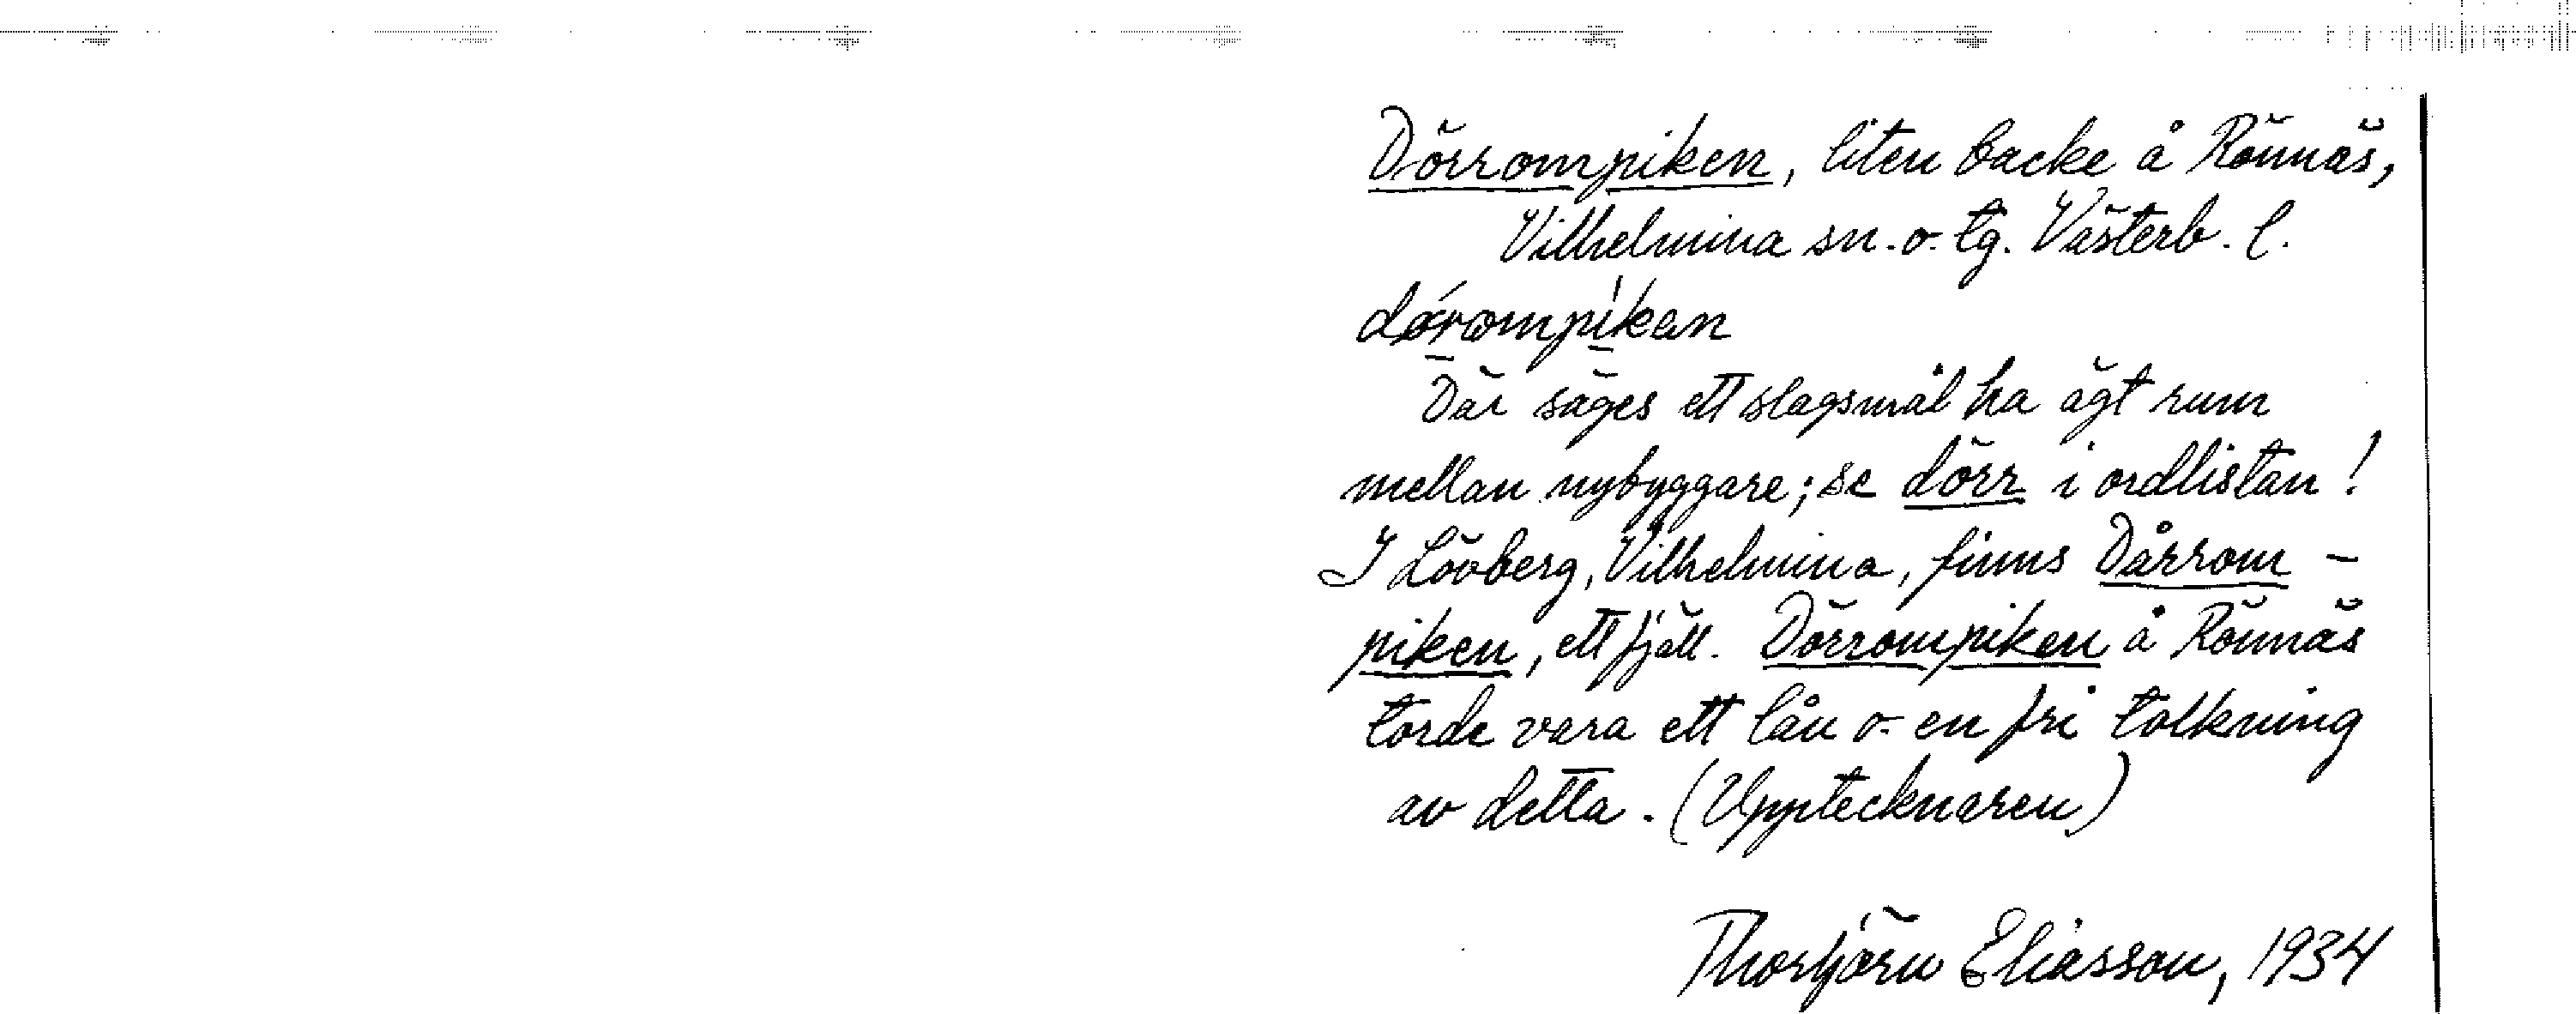 Dörrompiken, liten backe å Rönnäs,
Vilhelmina sn. o. tg. Västerb. l.
Där säges ett slagsmål ha ägt rum
mellan nybyggare; se dörr i ordlistan!
I Lövberg, Vilhelmina, finns Dårrom-
piken, ett fjäll. Dörrompiken å Rönnäs
torde vara ett lån o. en fri tolkning
av detta. (Upptecknaren)
Thorbjörn Eliasson, 1934